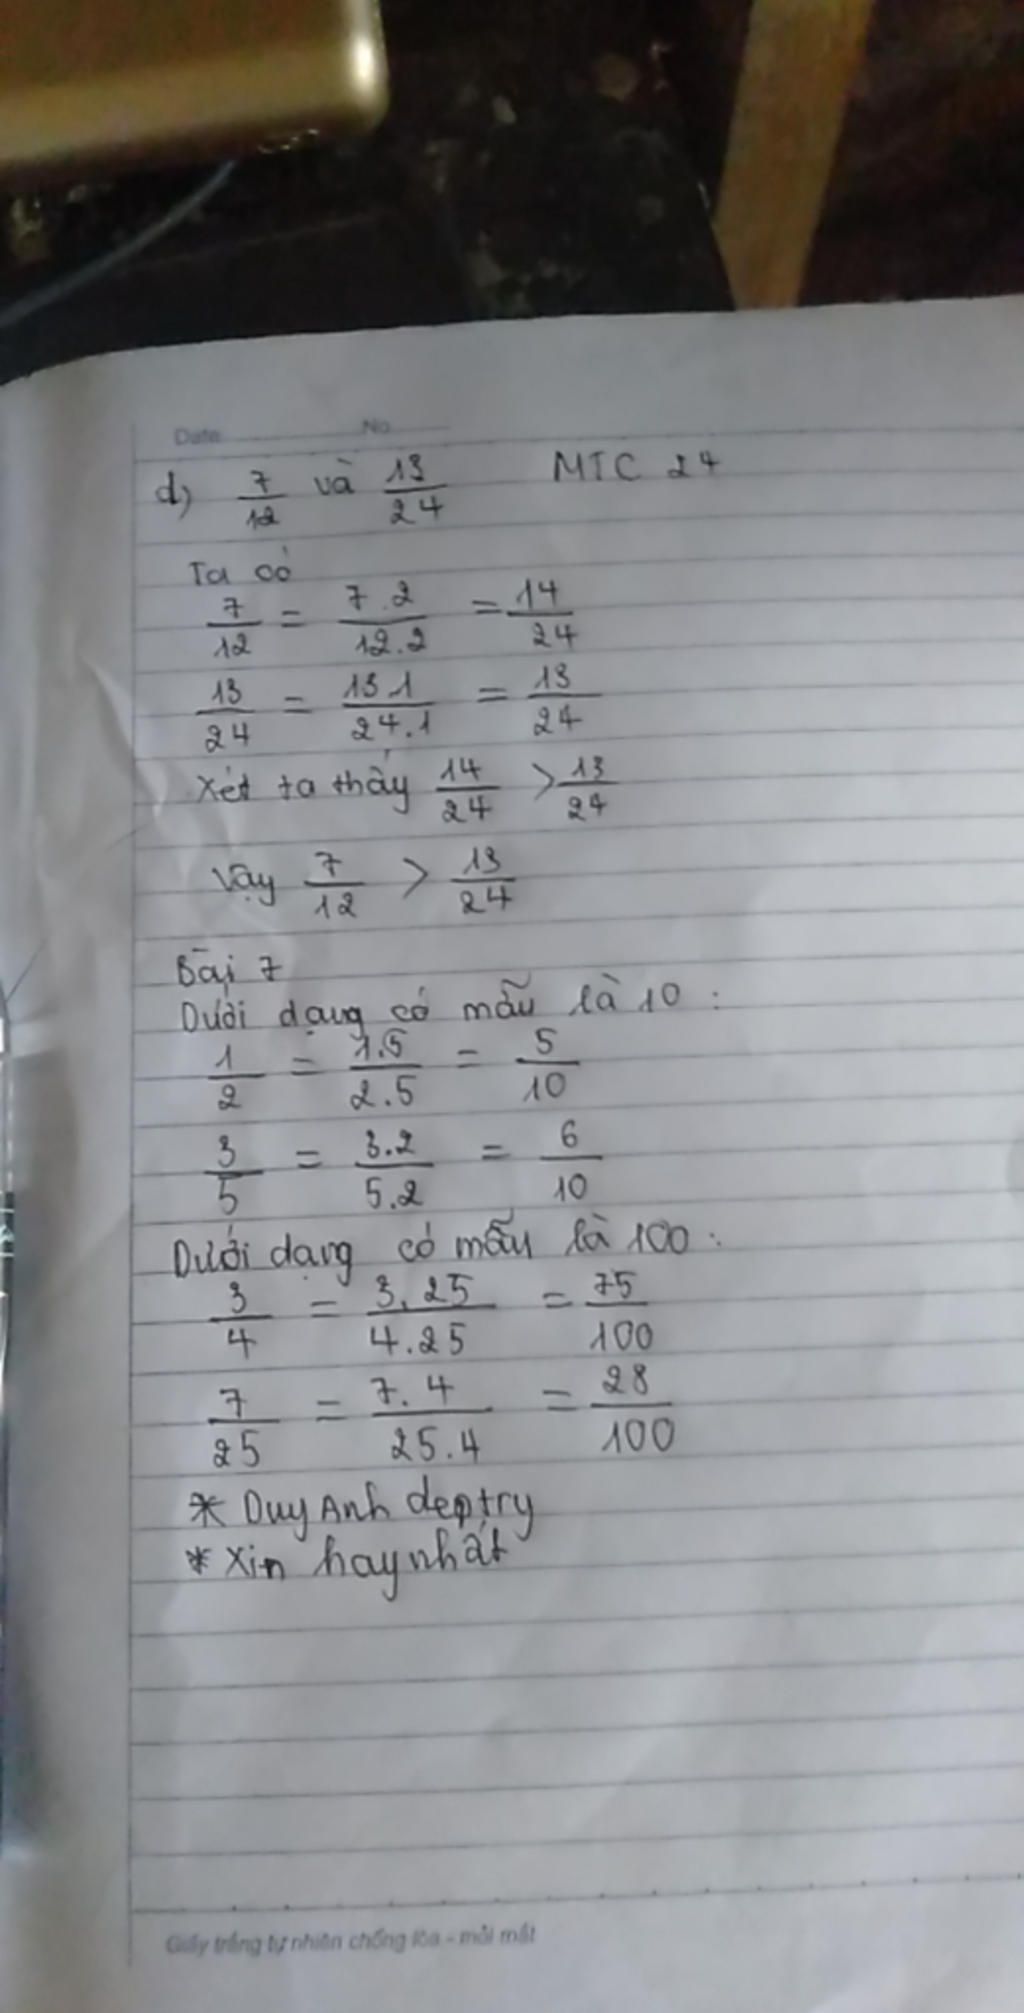 Date No
d) 7/12 và 13/24 MTC 24
Ta có
7/12 = 7.2/12.2 = 14/24
13/24 = 13.1/24.1 = 13/24
Xét ta thấy 14/24 > 13/24
Vậy 7/12 > 13/24
Bài 7
Dưới dạng có mẫu là 10 :
1/2 = 1.5/2.5 = 5/10
3/5 = 3.2/5.2 = 6/10
Dưới dạng có mẫu là 100 :
3/4 = 3.25/4.25 = 75/100
7/25 = 7.4/25.4 = 28/100
* Duy Anh deptry
* Xin hay nhất
Giấy trắng tự nhiên chống lóa - mỏi mắt